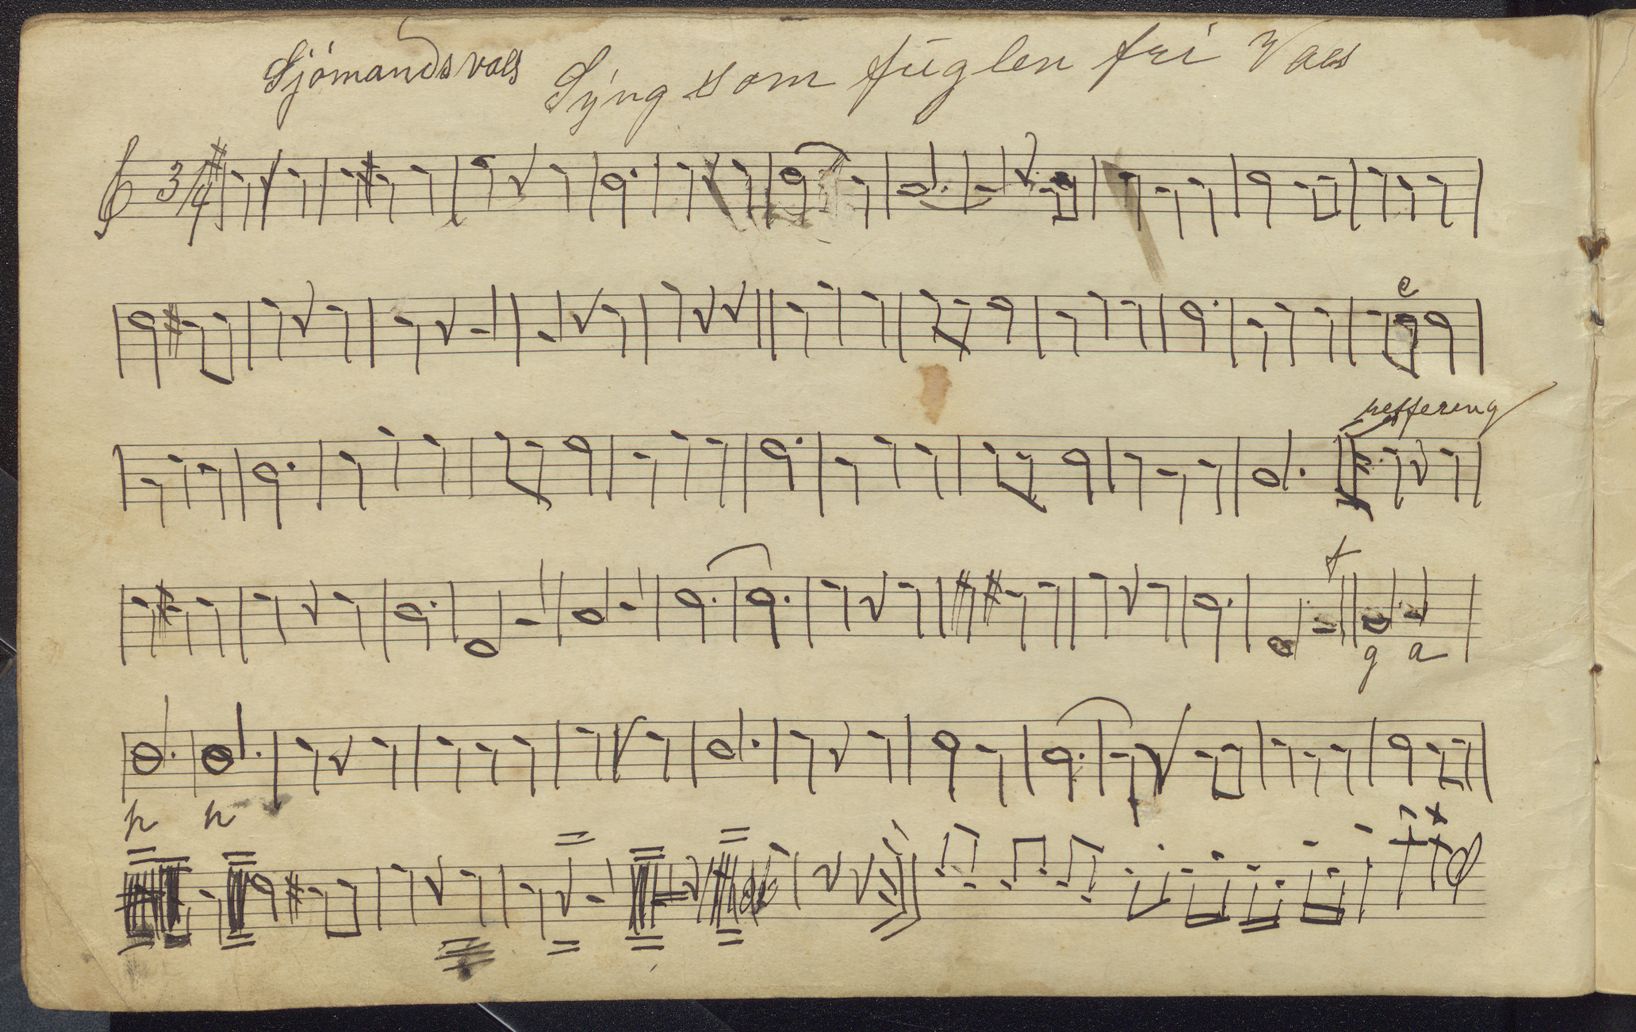 Sjómandsvals Sýng som fúglen fri Vals
3/4
e
reffereng
g a
h h